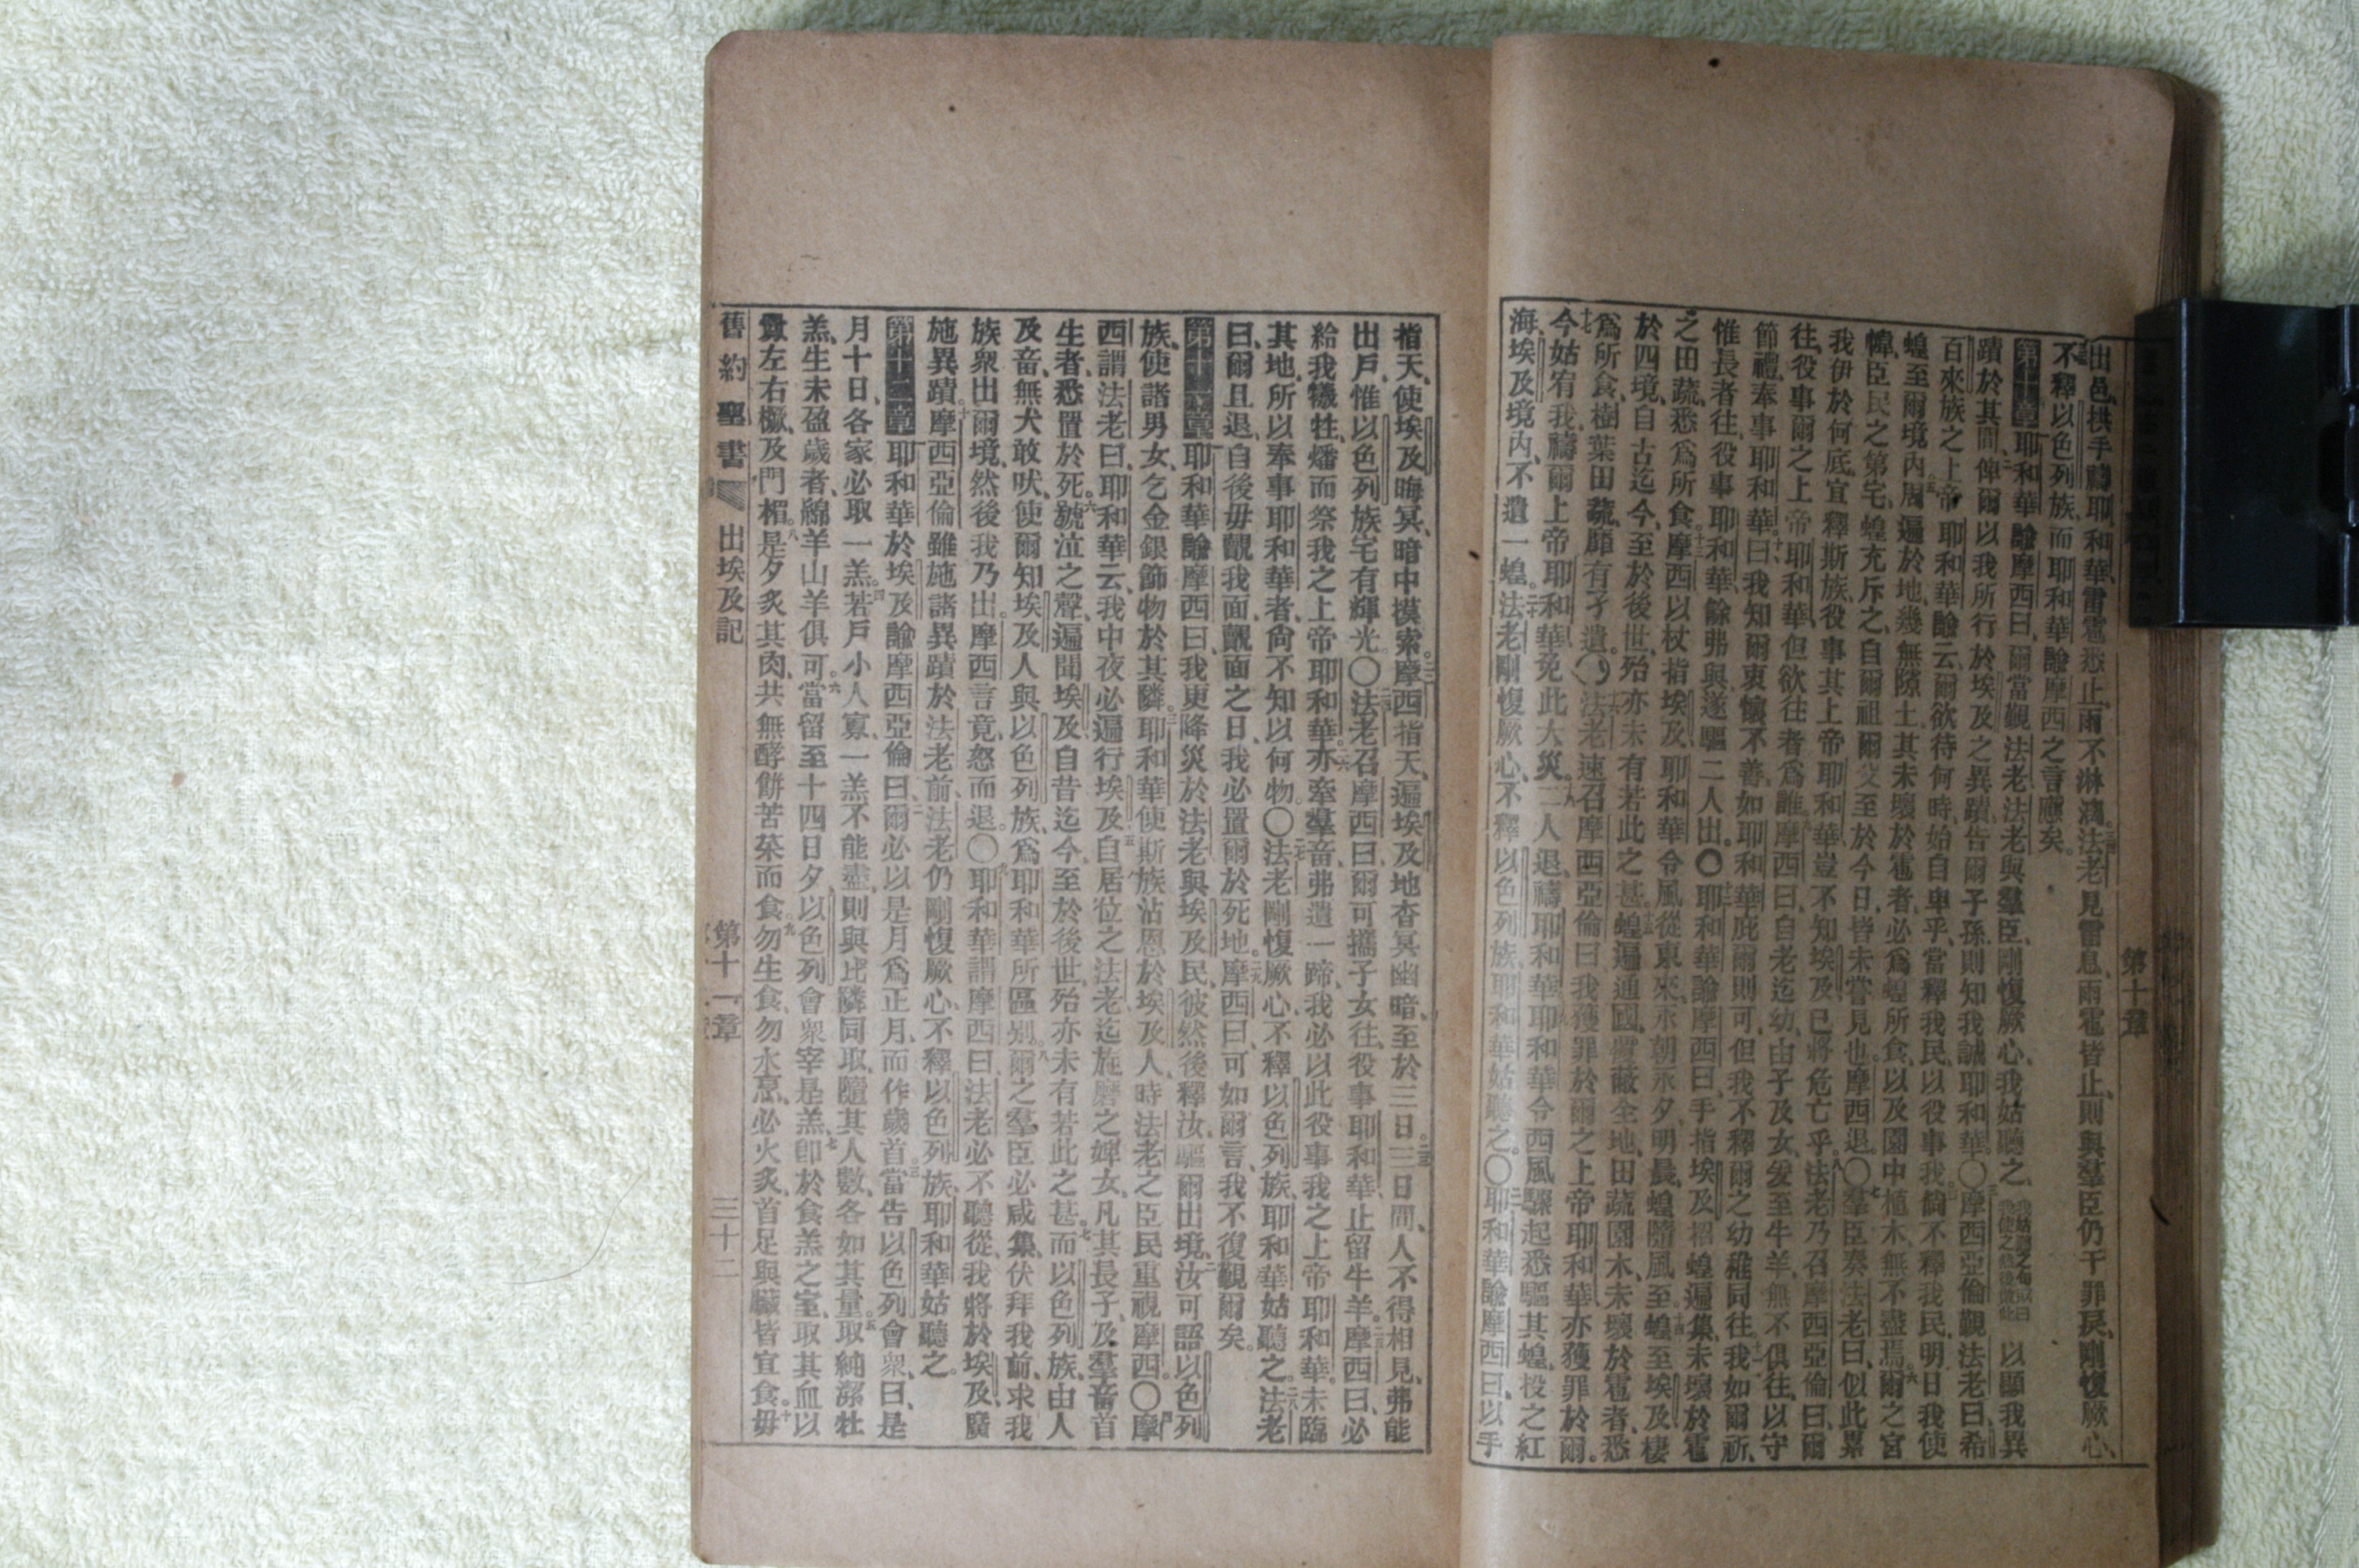 第十章
出邑、拱手禱耶和華、雷雹悉止、雨不淋漓。法老見雷息、雨雹皆止、則與羣臣仍干罪戾、剛愎厥心、
不釋以色列族、而耶和華諭摩西之言應矣。
第十章 耶和華諭摩西曰、爾當覲法老、法老與羣臣、剛愎厥心、我姑聽之、以顯我異
蹟於其間、俾爾以我所行於埃及之異蹟、告爾子孫、則知我誠耶和華、〇摩西亞倫覲法老曰、希
百來族之上帝耶和華諭云、爾欲待何時、始自卑乎、當釋我民、以役事我、倘不釋我民、明日我使
蝗至爾境內、周遍於地、幾無隙土、其未壞於雹者、必爲蝗所食、以及園中植木、無不盡焉。爾之宮
幃、臣民之第宅、蝗充斥之、自爾祖爾父至於今日、皆未嘗見也。摩西退、〇羣臣奏法老曰、似此累
我伊於何底、宜釋斯族役事其上帝耶和華、豈不知埃及已將危亡乎。法老乃召摩西亞倫曰、爾
往、役事爾之上帝耶和華、但欲往者爲誰。摩西曰、自老迄幼、由子及女、爰至牛羊、無不俱往、以守
節禮、奉事耶和華。曰、我知爾衷懷不善、如耶和華庇爾則可、但我不釋爾之幼稚同往、我如爾祈、
惟長者往、役事耶和華、餘弗與、遂驅二人出。〇耶和華諭摩西曰、手指埃及、招蝗遍集、未壞於雹
之田蔬、悉爲所食。摩西以杖指埃及、耶和華令風從東來、永朝永夕、明晨、蝗隨風至。蝗至埃及、棲
於四境、自古迄今、至於後世、殆亦未有若此之甚。蝗遍通國、翳蔽全地、田蔬園木、未壞於雹者、悉
爲所食、樹葉田蔬、靡有孑遺。〇法老速召摩西亞倫曰、我獲罪於爾之上帝耶和華、亦獲罪於爾。
今姑宥我、禱爾上帝耶和華、免此大災。二人退、禱耶和華、耶和華令西風驟起、悉驅其蝗、投之紅
海、埃及境內、不遺一蝗。法老剛愎厥心、不釋以色列族、耶和華姑聽之。〇耶和華諭摩西曰、以手
指天、使埃及晦冥、暗中摸索。摩西指天、遍埃及地杳冥幽暗、至於三日。三日間、人不得相見、弗能
出戶、惟以色列族宅有輝光。〇法老召摩西曰、爾可攜子女往、役事耶和華、止留牛羊。摩西曰、必
給我犧牲、燔而祭我之上帝耶和華。亦牽羣畜、弗遺一蹄、我必以此役事我之上帝耶和華。未臨
其地、所以奉事耶和華者、尙不知以何物。〇法老剛愎厥心、不釋以色列族、耶和華姑聽之。法老
曰、爾且退、自後毋覿我面、覿面之日、我必置爾於死地。摩西曰、可如爾言、我不復覿爾矣。
第十一章 耶和華諭摩西曰、我更降災於法老與埃及民、彼然後釋汝、驅爾出境、汝可語以色列
族、使諸男女乞金銀飾物於其隣。耶和華使斯族沾恩於埃及人、時法老之臣民重視摩西。〇摩
西謂法老曰、耶和華云、我中夜必遍行埃及、自居位之法老、迄旋磨之婢女、凡其長子、及羣畜首
生者、悉置於死。號泣之聲、遍聞埃及、自昔迄今、至於後世、殆亦未有若此之甚。而以色列族、由人
及畜、無犬敢吠、使爾知埃及人與以色列族、爲耶和華所區別。爾之羣臣必咸集、伏拜我前、求我
族衆出爾境、然後我乃出。摩西言竟、怒而退。〇耶和華謂摩西曰、法老必不聽從、我將於埃及、廣
施異蹟。摩西亞倫雖施諸異蹟於法老前、法老仍剛愎厥心、不釋以色列族、耶和華姑聽之。
第十二章 耶和華於埃及、諭摩西亞倫曰、爾必以是月爲正月、而作歲首。當告以色列會衆曰、是
月十日、各家必取一羔。若戶小人寡、一羔不能盡、則與比隣同取、隨其人數、各如其量。取純潔牡
羔、生未盈歲者、綿羊山羊俱可。當留至十四日夕、以色列會衆宰是羔、卽於食羔之室、取其血以
釁左右橛、及門楣。是夕炙其肉、共無酵餅苦菜而食。勿生食、勿水烹、必火炙、首足與臟皆宜食。毋
舊約聖書 出埃及記 第十一章 三十二